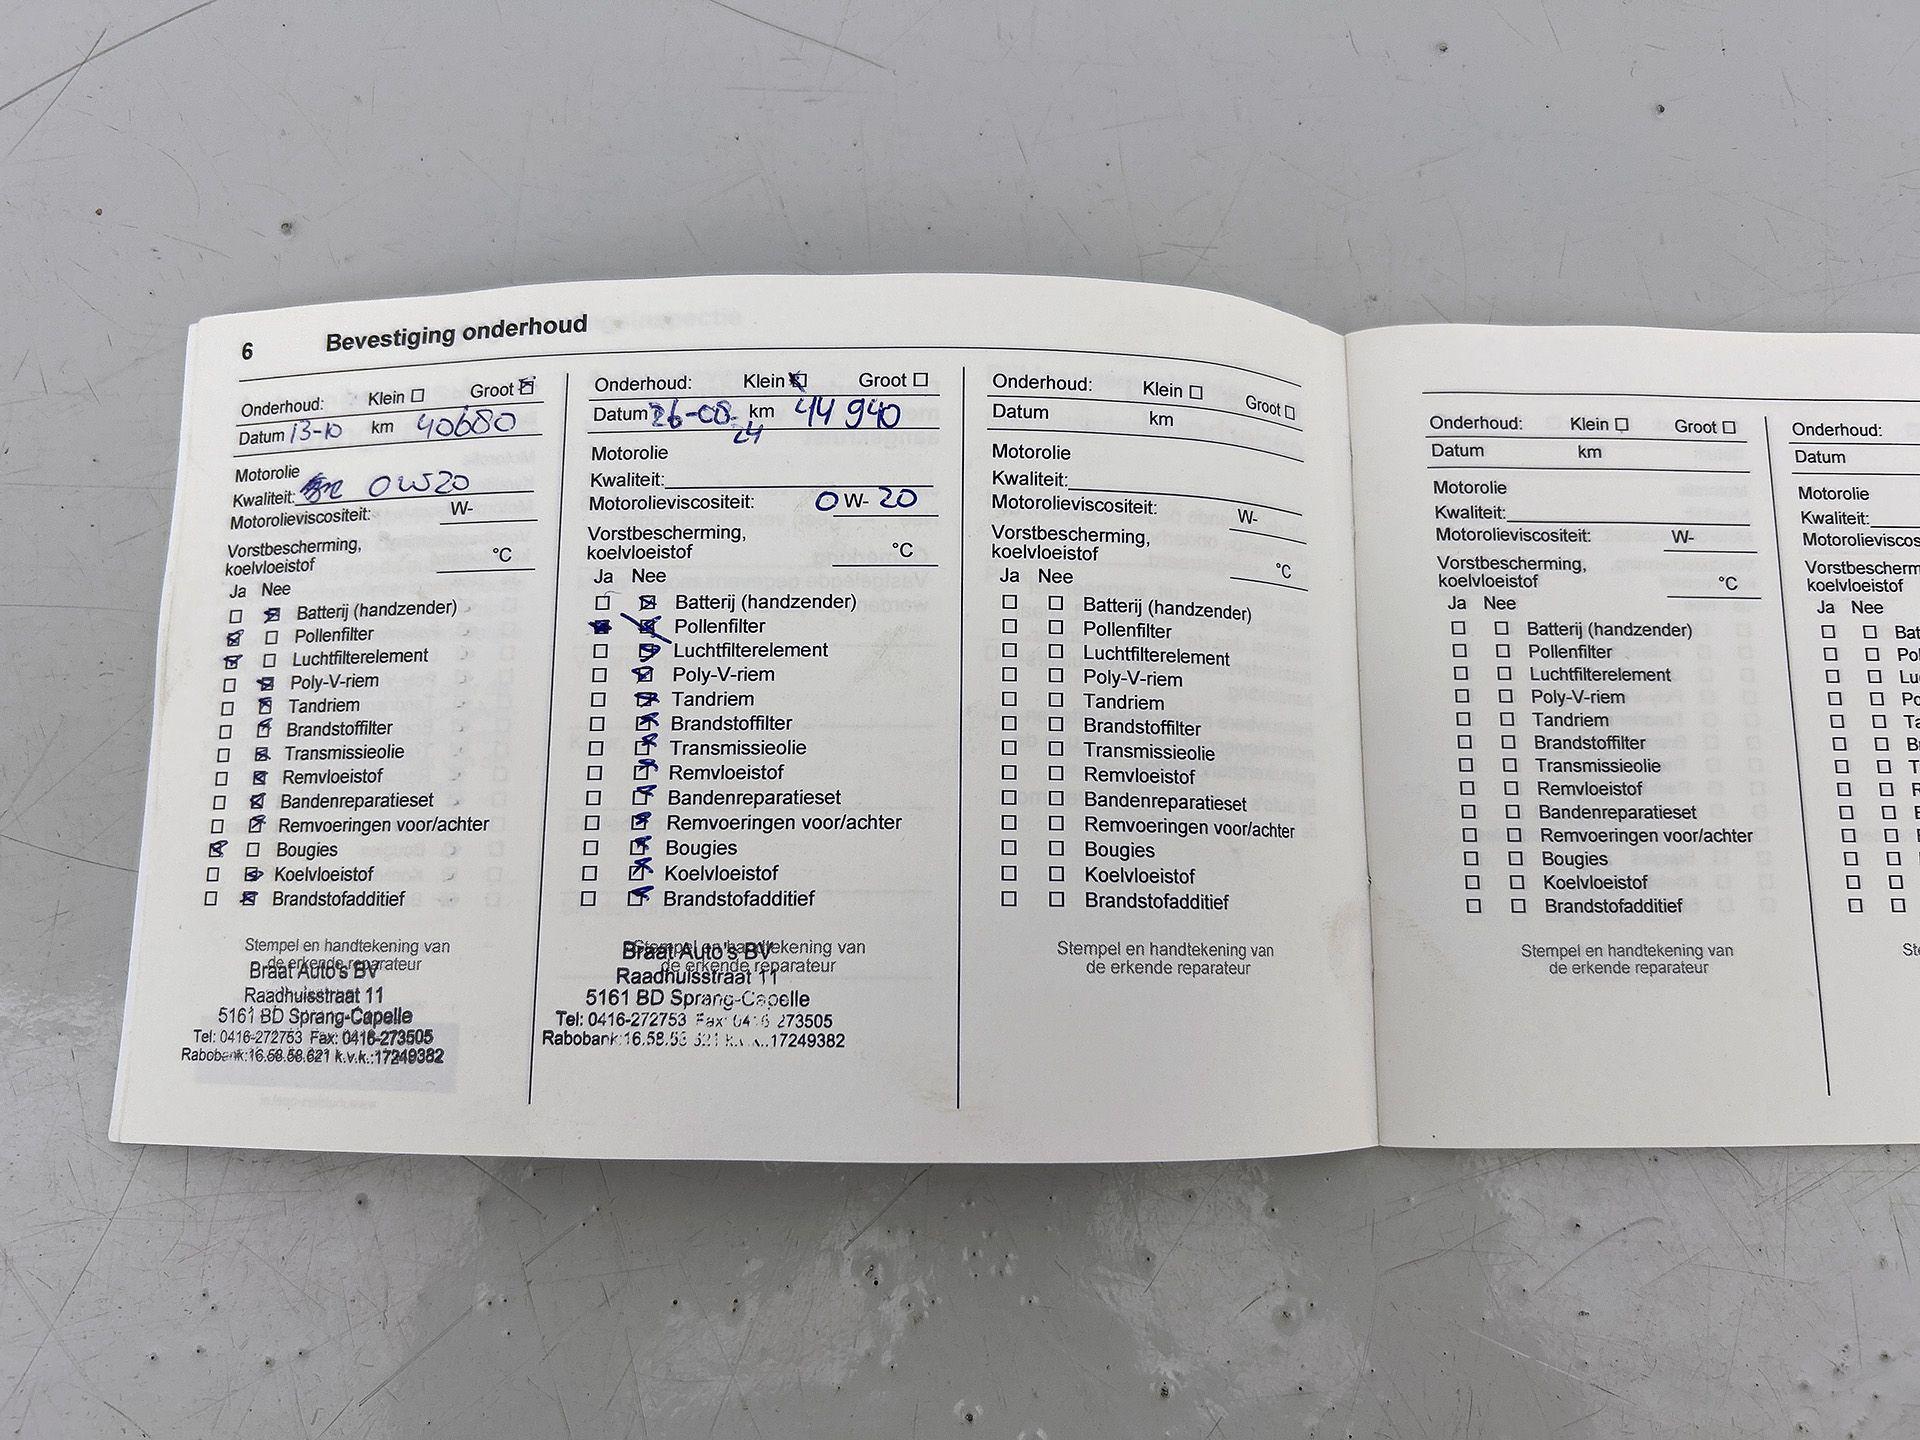 6 Bevestiging onderhoud
Onderhoud: Klein Groot
Datum 13-10 km 40680
Motorolie
Kwaliteit: 0W20
Motorolieviscositeit: W-
Vorstbescherming,
koelvloeistof °C
Ja Nee
Batterij (handzender)
Pollenfilter
Luchtfilterelement
Poly-V-riem
Tandriem
Brandstoffilter
Transmissieolie
Remvloeistof
Bandenreparatieset
Remvoeringen voor/achter
Bougies
Koelvloeistof
Brandstofadditief
Stempel en handtekening van
de erkende reparateur
Braat Auto's BV
Raadhuisstraat 11
5161 BD Sprang-Capelle
Tel: 0416-272753 Fax: 0416-273505
Rabobank:16.58.58.621 k.v.k.:17249382
Onderhoud: Klein Groot
Datum 26-08-24 km 44940
Motorolie
Kwaliteit:
Motorolieviscositeit: 0 W- 20
Vorstbescherming,
koelvloeistof °C
Ja Nee
Batterij (handzender)
Pollenfilter
Luchtfilterelement
Poly-V-riem
Tandriem
Brandstoffilter
Transmissieolie
Remvloeistof
Bandenreparatieset
Remvoeringen voor/achter
Bougies
Koelvloeistof
Brandstofadditief
Stempel en handtekening van
de erkende reparateur
Braat Auto's BV
Raadhuisstraat 11
5161 BD Sprang-Capelle
Tel: 0416-272753 Fax: 0416 273505
Rabobank:16.58.58 621 k.v.k.:17249382
Onderhoud: Klein Groot
Datum km
Motorolie
Kwaliteit:
Motorolieviscositeit: W-
Vorstbescherming,
koelvloeistof °C
Ja Nee
Batterij (handzender)
Pollenfilter
Luchtfilterelement
Poly-V-riem
Tandriem
Brandstoffilter
Transmissieolie
Remvloeistof
Bandenreparatieset
Remvoeringen voor/achter
Bougies
Koelvloeistof
Brandstofadditief
Stempel en handtekening van
de erkende reparateur
Onderhoud: Klein Groot
Datum km
Motorolie
Kwaliteit:
Motorolieviscositeit: W-
Vorstbescherming,
koelvloeistof °C
Ja Nee
Batterij (handzender)
Pollenfilter
Luchtfilterelement
Poly-V-riem
Tandriem
Brandstoffilter
Transmissieolie
Remvloeistof
Bandenreparatieset
Remvoeringen voor/achter
Bougies
Koelvloeistof
Brandstofadditief
Stempel en handtekening van
de erkende reparateur
Onderhoud:
Datum
Motorolie
Kwaliteit:
Motorolieviscos
Vorstbescherm
koelvloeistof
Ja Nee
Bat
Pol
Lu
Po
Ta
Br
T
R
B
F
Ste